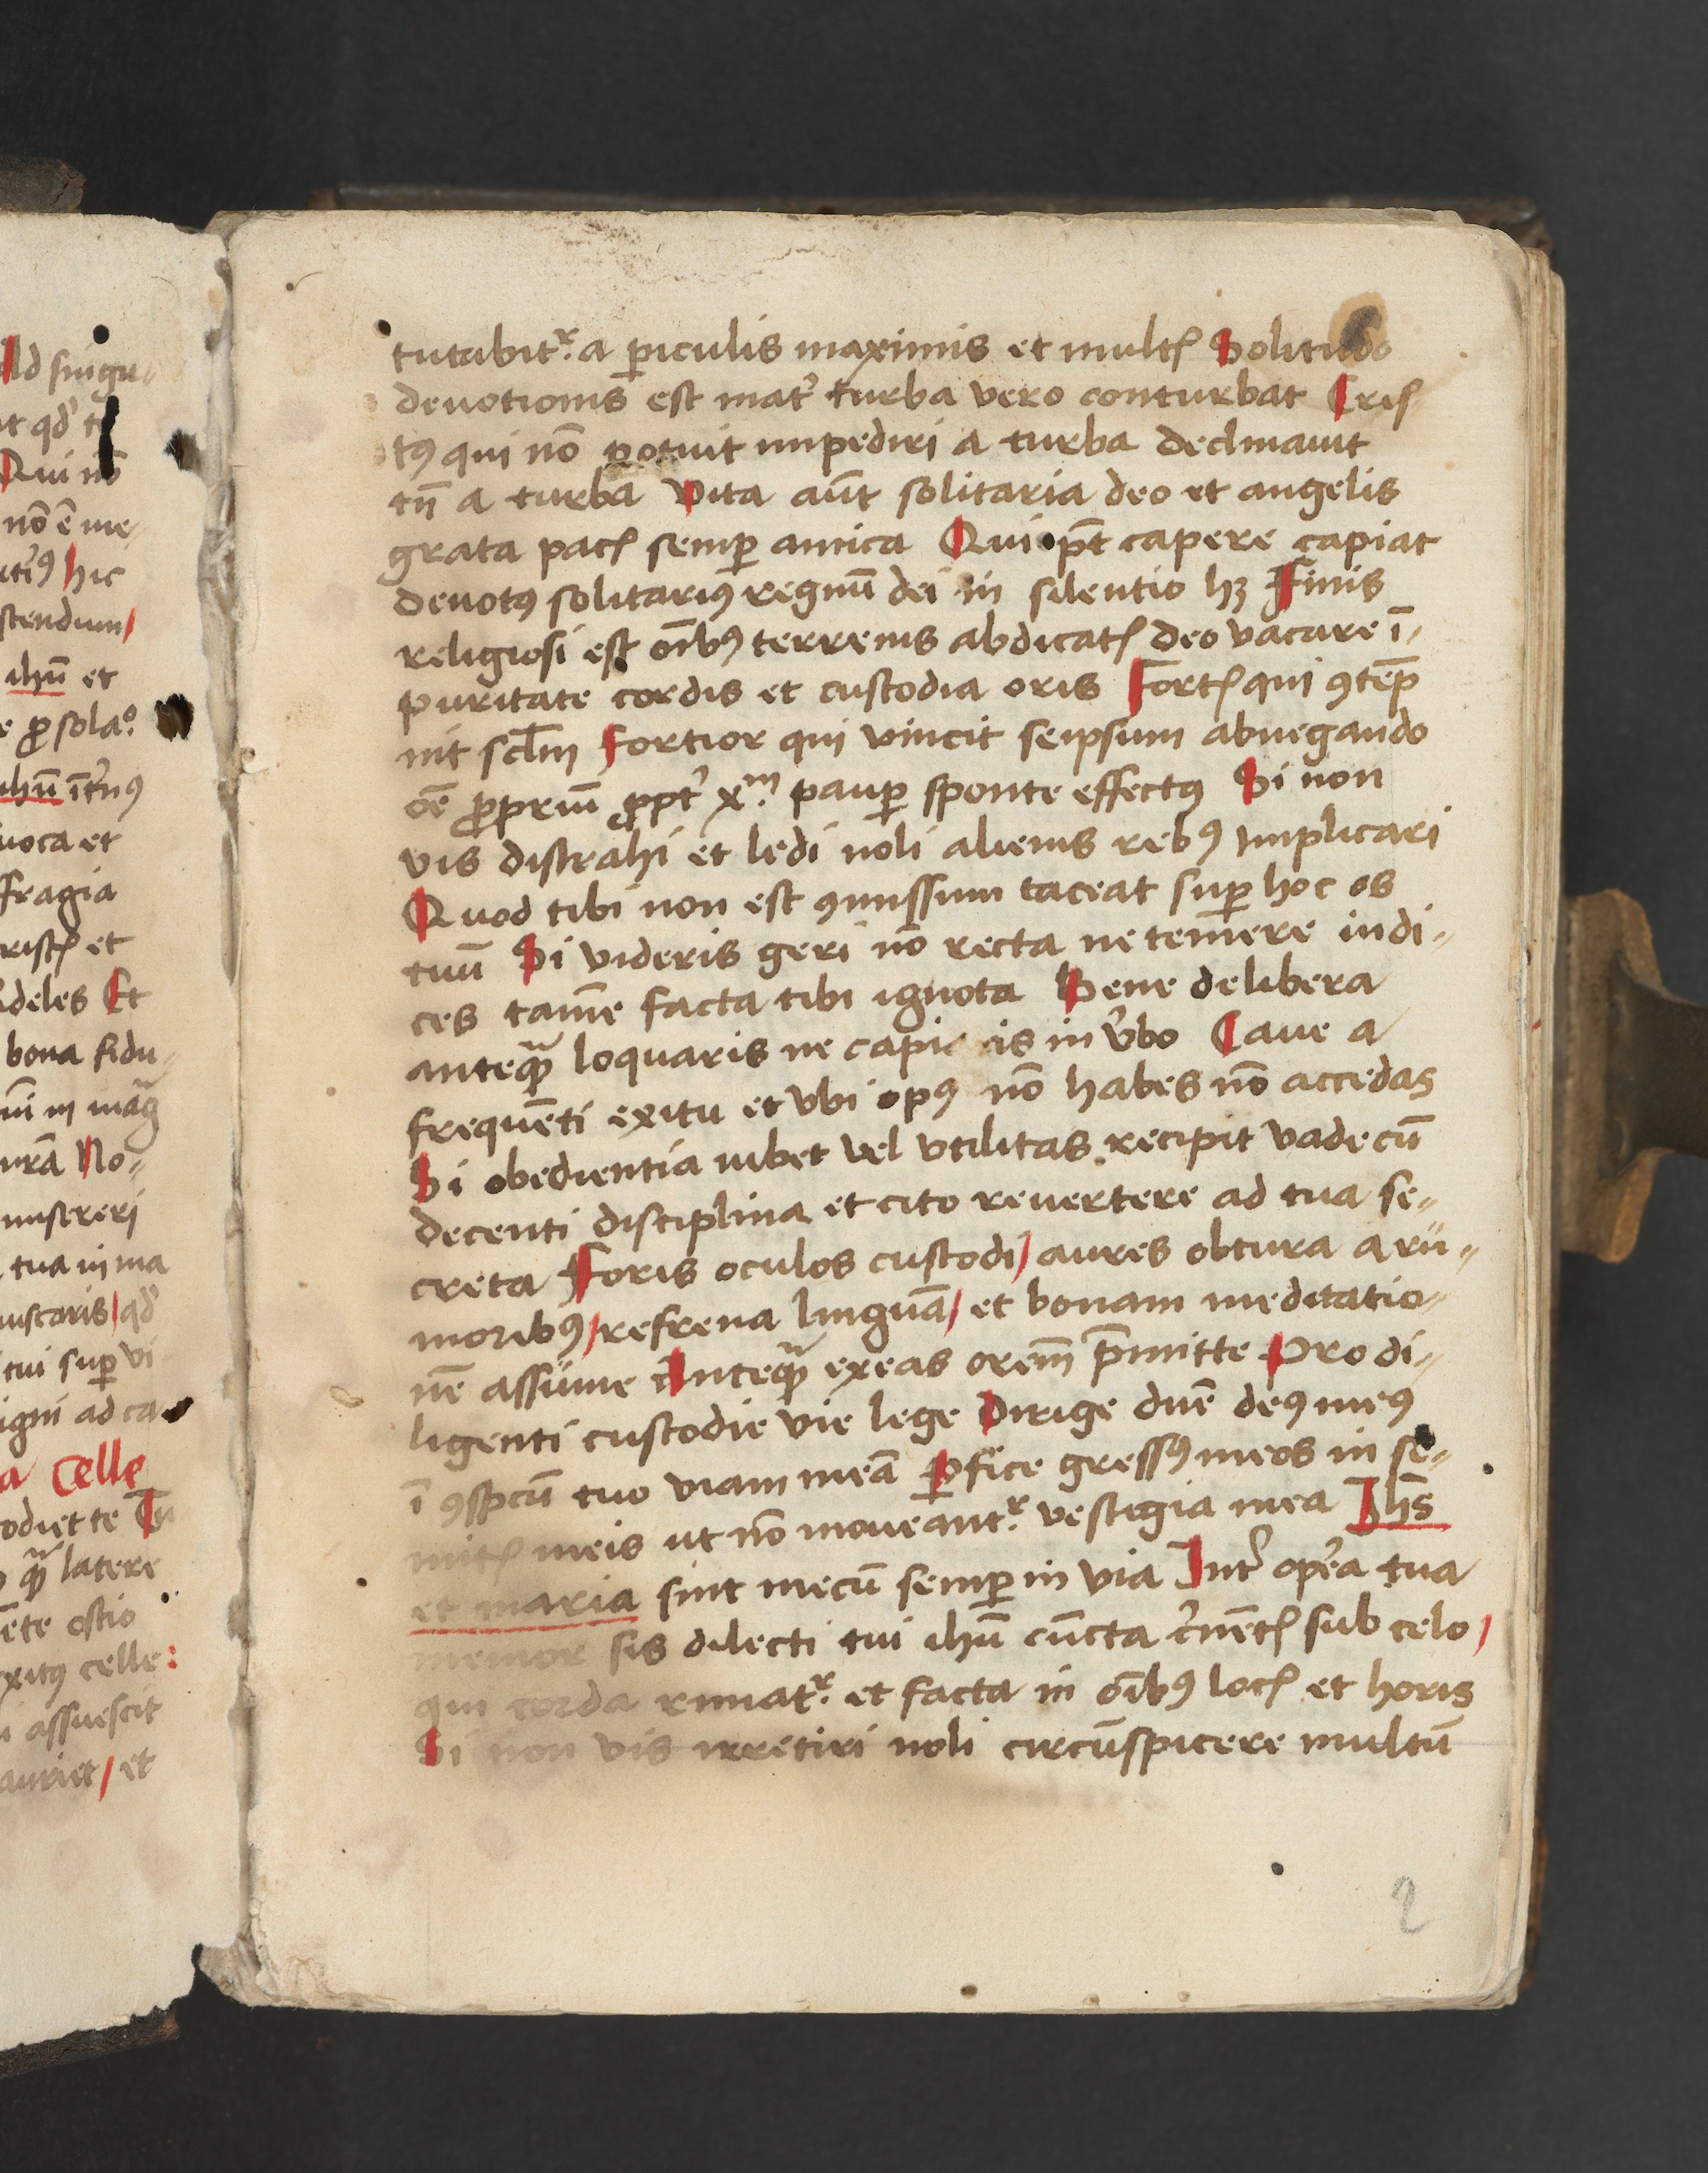 ld singu-
t qd' t
Qui nō
nō ē me
hic
stendum/
ihū et
e ꝓ sola.
ihū
uoca et
ffragia
ristꝭ et
ideles Et
bona fidu-
No-
misereri
tua in ma
qd'
tui suꝑ vi
igni ad ca
a Celle
odiet te
latere
ēte ostio
xitꝰ celle:
i assuescit
auriet/ et
tutabitʳ. a ꝑiculis maximis et multꝭ Solitudo
deuotionis est mat' turba vero conturbat Cris
tꝰ qui nō potuit impediri a turba declinauit
tn̄ a turba Vita aūt solitaria deo et angelis
grata pacꝭ semꝑ amica Qui pt̄ capere capiat
deuotꝰ solitariꝰ regnū dei in silentio hꝫ Finis
religiosi est oībꝰ terrenis abdicatꝭ deo vacare ī-
puritate cordis et custodia oris Fortꝭ qui ꝯtēp
nit sclm̄ Fortior qui vincit seipsum abnegando
oē ꝓpriū ꝓpt' xᵐ. pauꝑ sponte effectꝰ Si non
vis distrahi et ledi noli alienis rebꝰ implicari
Quod tibi non est ꝯmissum taceat suꝑ hoc os
tuū Si videris geri nō recta ne temere iudi-
ces tamē facta tibi ignota Bene delibera
anteqꝫ̄ loquaris ne capi is in v'bo Caue a
frequēti exitu et vbi opꝰ nō habes nō accedas
Si obedientia iubet vel vtilitas recipit vade cū
decenti disciplina et cito reuertere ad tua se-
creta Foris oculos custodi/ aures obtura a rū-
moribꝰ/ refrena linguā/ et bonam meditatio-
nē assūme Anteqꝫ̄ exeas orem̄ p̄mitte Pro di-
ligenti custodie vie lege Dirige dn̄e deꝰ meꝰ
ī ꝯspcū tuo viam meā ꝑfice gressꝰ meos in se-
mitꝭ meis ut nō moueantʳ. vestigia mea Ihs̄
et maria sint mecū semꝑ in via Int' op'a tua
memor sis dilecti tui ihū cūcta c'nētꝭ sub celo/
qui corda rimatʳ. et facta in oībꝰ locꝭ et horis
Si non vis irretiri noli circūspicere multū
2